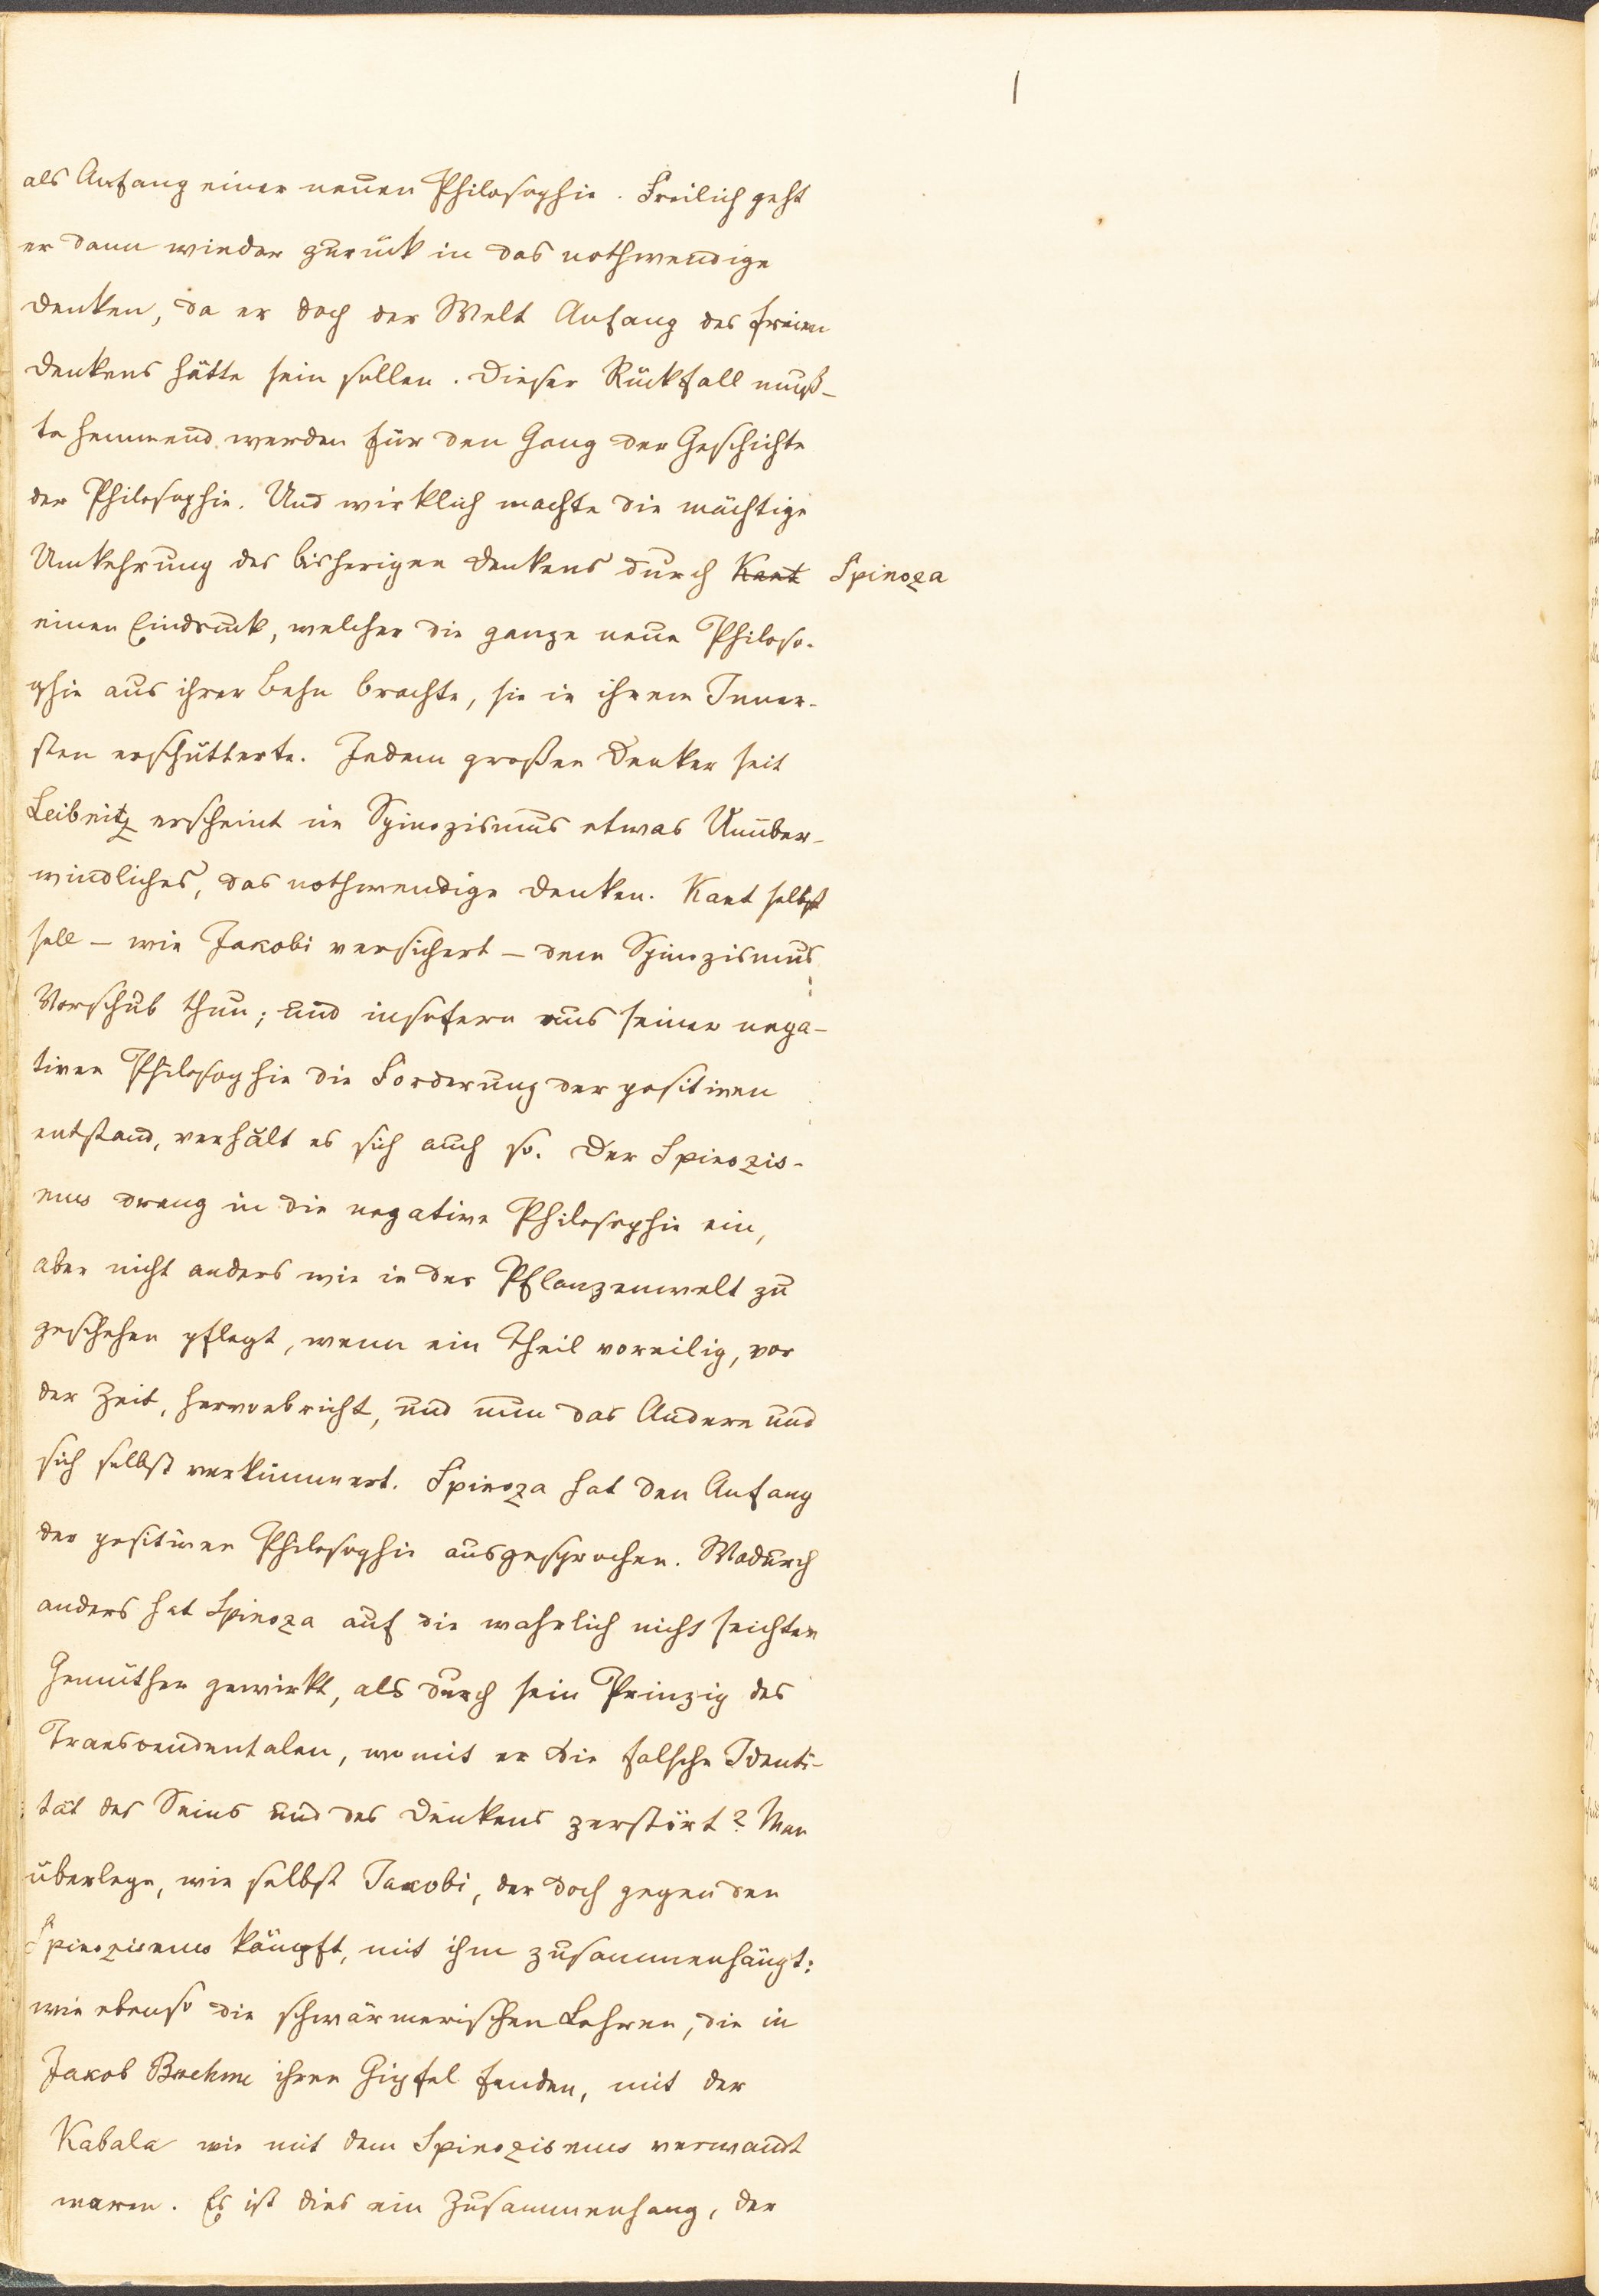 als Anfang einer neuen Philosophie. Freilich geht
er dann wieder zurück in das nothwendige
Denken, da er doch der Welt Anfang des freien
Denkens hätte sein sollen. Dieser Rückfall muß-
te hemmend werden für den Gang der Geschichte
der Philosophie. Und wirklich machte die mächtige
Umkehrung des bisherigen Denkens durch Kant Spinoza
einen Eindruck, welcher die ganze neue Philoso-
phie aus ihrer Bahn brachte, sie in ihrem Inner-
sten erschütterte. Jedem großen Denker seit
Leibnitz erscheint im Spinozismus etwas Unüber-
windliches, das nothwendige Denken. Kant selbst
soll – wie Jakobi versichert – dem Spinozismus
Vorschub thun; und insofern aus seiner nega-
tiven Philosophie die Forderung der positiven
entstand, verhält es sich auch so. Der Spinozis-
mus drang in die negative Philosophie ein,
aber nicht anders wie in der Pflanzenwelt zu
geschehen pflegt, wenn ein Theil voreilig, vor
der Zeit, hervorbricht, und nun das Andere und
sich selbst verkümmert. Spinoza hat den Anfang
der positiven Philosophie ausgesprochen. Wodurch
anders hat Spinoza auf die wahrlich nicht seichten
Gemüther gewirkt, als durch sein Prinzip des
Transcendentalen, womit er die falsche Identi-
tät des Seins und des Denkens zerstört? Man
überlege, wie selbst Jacobi, der doch gegen den
Spinozismus kämpft, mit ihm zusammenhängt:
wie ebenso die schwärmerischen Lehren, die in
Jakob Boehme ihren Gipfel fanden, mit der
Kabala wie mit dem Spinozismus verwandt
waren. Es ist dies ein Zusammenhang, der